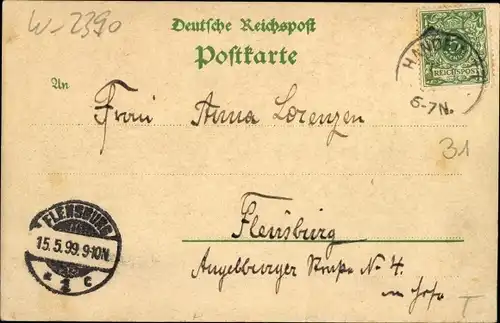 W-2390
Deutsche Reichspost
Postkarte
An
5
REICHSPOST
HANDEW
6-7N.
Frau Anna Lorenzen
31
Flensburg
FLENSBURG
15.5.99.9-10N.
* 1 c
Angelburger Straße No 4.
im Hofe
T